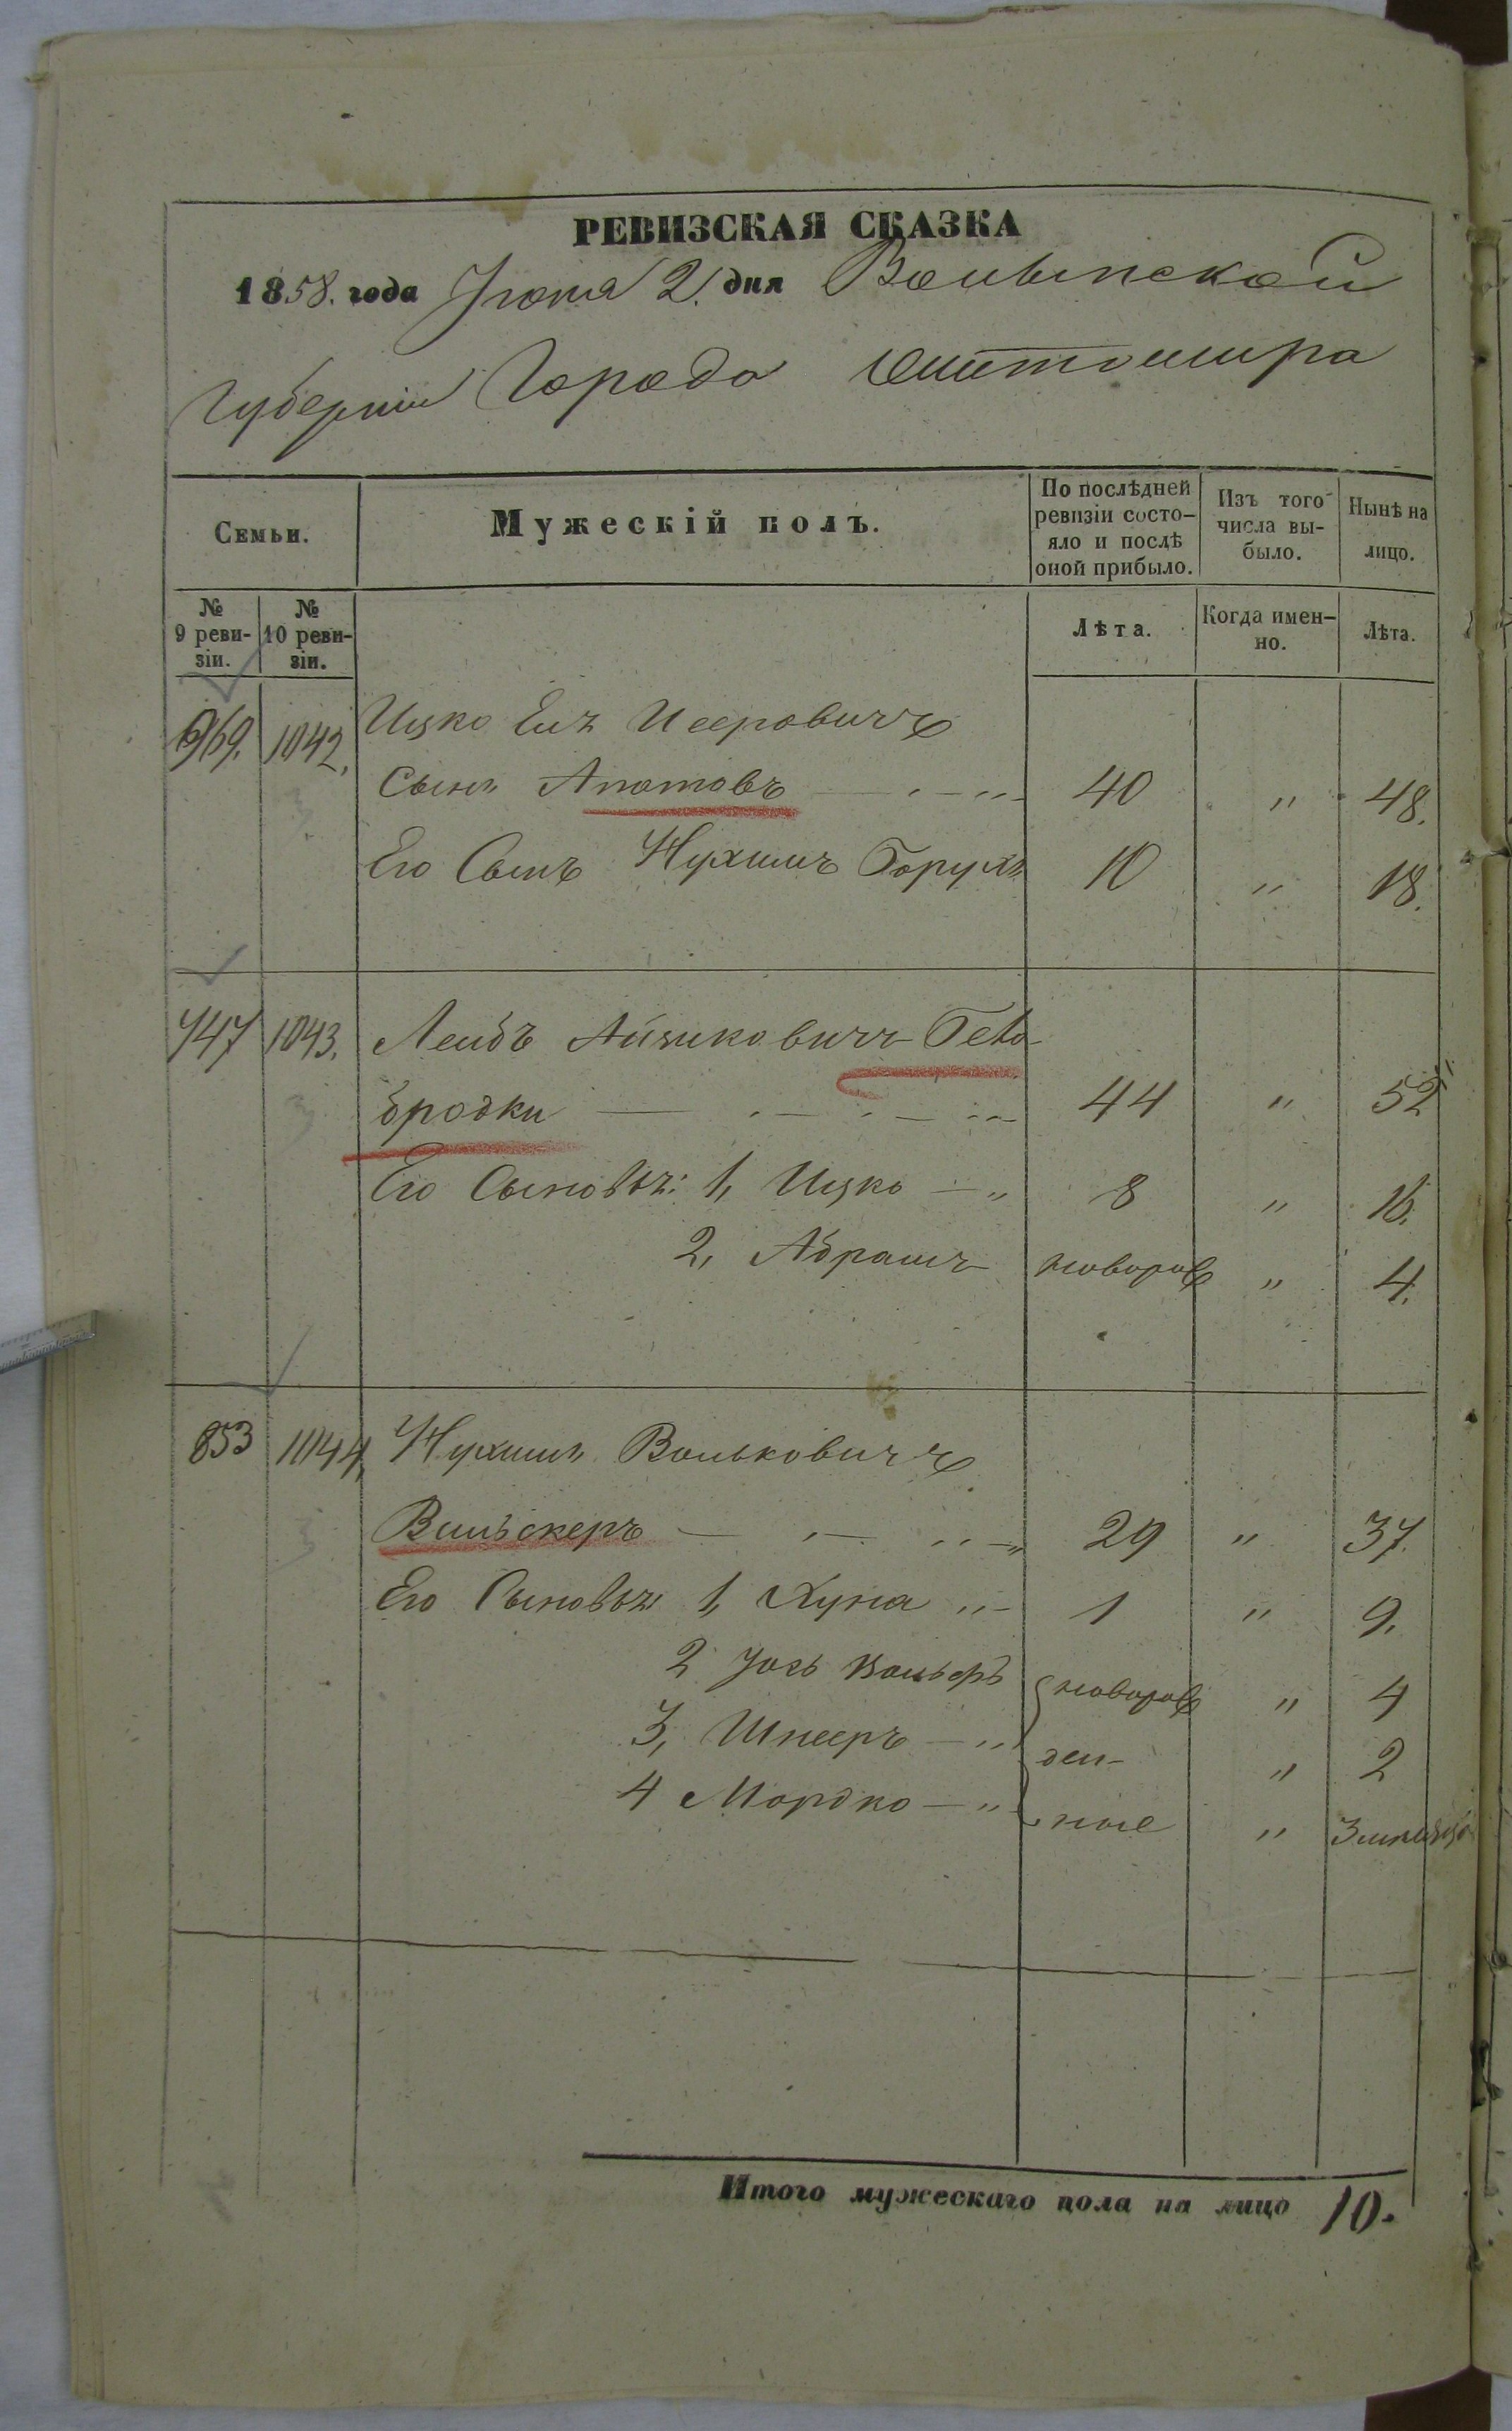 РЕВИЗСКАЯ СКАЗКА
1858. года Іюня 2. дня Волынской
Губерніи Города Житомира
Семьи.
Мужескій полъ.
По послѣдней ревизіи состо-яло и послѣ оной прибыло.
Изъ того числа вы-было.
Нынѣ на лицо.
№ 9 реви-зіи.
№ 10 реви-зіи.
Лѣта.
Когда имен-но.
Лѣта.
969. 1042. Ицко Елъ Мееровичъ
Сынъ 40 " 48.
Его Сынъ Нухимъ Борухъ 10 " 18.
747 1043. Лейбъ Айзиковичъ Бѣло-
бродки 44 " 52
Его Сыновья: 1, Ицко 8 " 16.
2, Абрамъ новорож " 4.
853 1044. Нухимъ Вольковичъ
Вильскеръ 29 " 37.
Его Сыновья 1, Хуна 1 " 9.
2 Іось Вольфъ новорож " 4
3, Шнееръ ден- " 2
4 Мордко ные " 3 мѣсяца
Итого мужескаго пола на лицо 10.